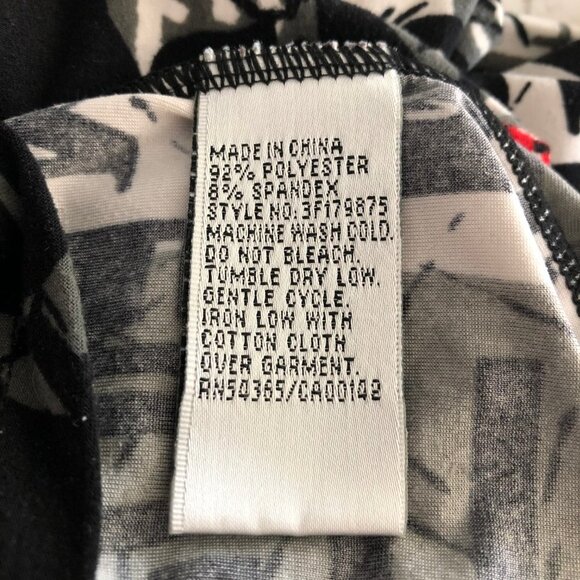 MADE IN CHINA
92% POLYESTER
8% SPANDEX
STYLE NO: 3F179875
MACHINE WASH COLD.
DO NOT BLEACH.
TUMBLE DRY LOW.
GENTLE CYCLE.
IRON LOW WITH
COTTON CLOTH
OVER GARMENT.
RN54365/CA00148